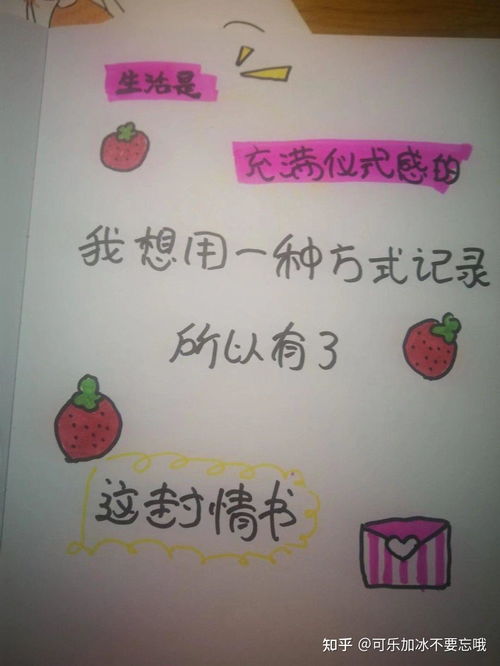 生活是
充满仪式感的
我想用一种方式记录
所以有了
这封情书
知乎 @可乐加冰不要忘哦